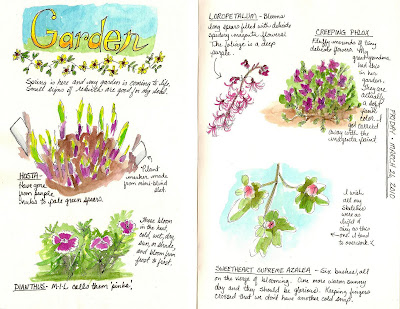 Garden
Spring is here and my garden is coming to life.
Small signs of rebirth are good for my soul.
Plant
marker made
from mini-blind
slat.
HOSTA -
Have gone
from purple
snubs to pale green spears.
These bloom
in the heat,
cold, wet, dry,
sun, or shade,
and bloom from
frost to frost.
DIANTHUS - M-I-L calls them 'pinks'.
LOROPETALUM - Blooms
long spears filled with delicate
spidery magenta flowers!
The foliage is a deep
purple.
CREEPING PHLOX
Fluffy mounds of tiny
delicate flowers. My
grandmother
had this
in her
garden.
They are
actually
a soft
pink
color. I
got carried
away with the
magenta paint
FRIDAY • MARCH 26, 2010
I wish
all my
sketches
were as
light &
airy as this
one. I tend
to overwork.
SWEETHEART SUPREME AZALEA - Six bushes, all
on the verge of blooming. One more warm sunny
day and they should be glorious. Keeping fingers
crossed that we don't have another cold snap.